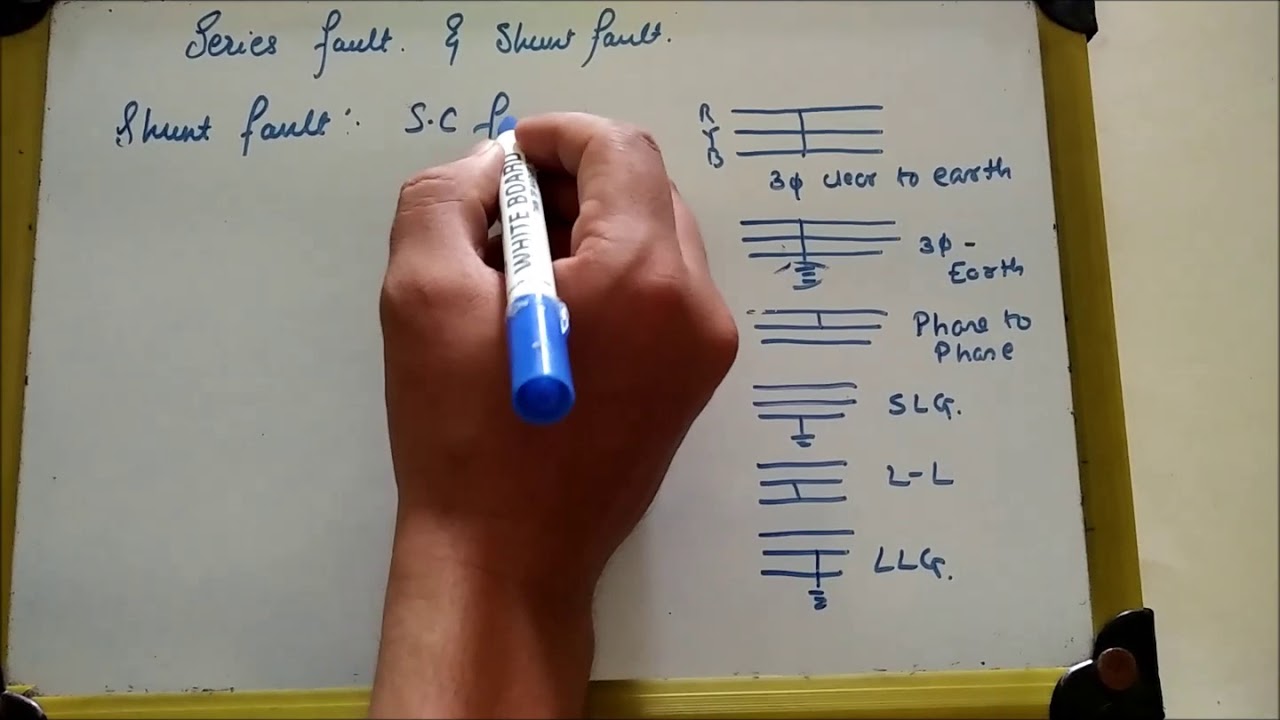 Series fault. & Shunt fault.
Shunt fault:- S.C f
R
Y
B
3φ clear to earth
3φ -
Earth
Phase to
Phase
SLG.
L-L
LLG.
WHITE BOARD